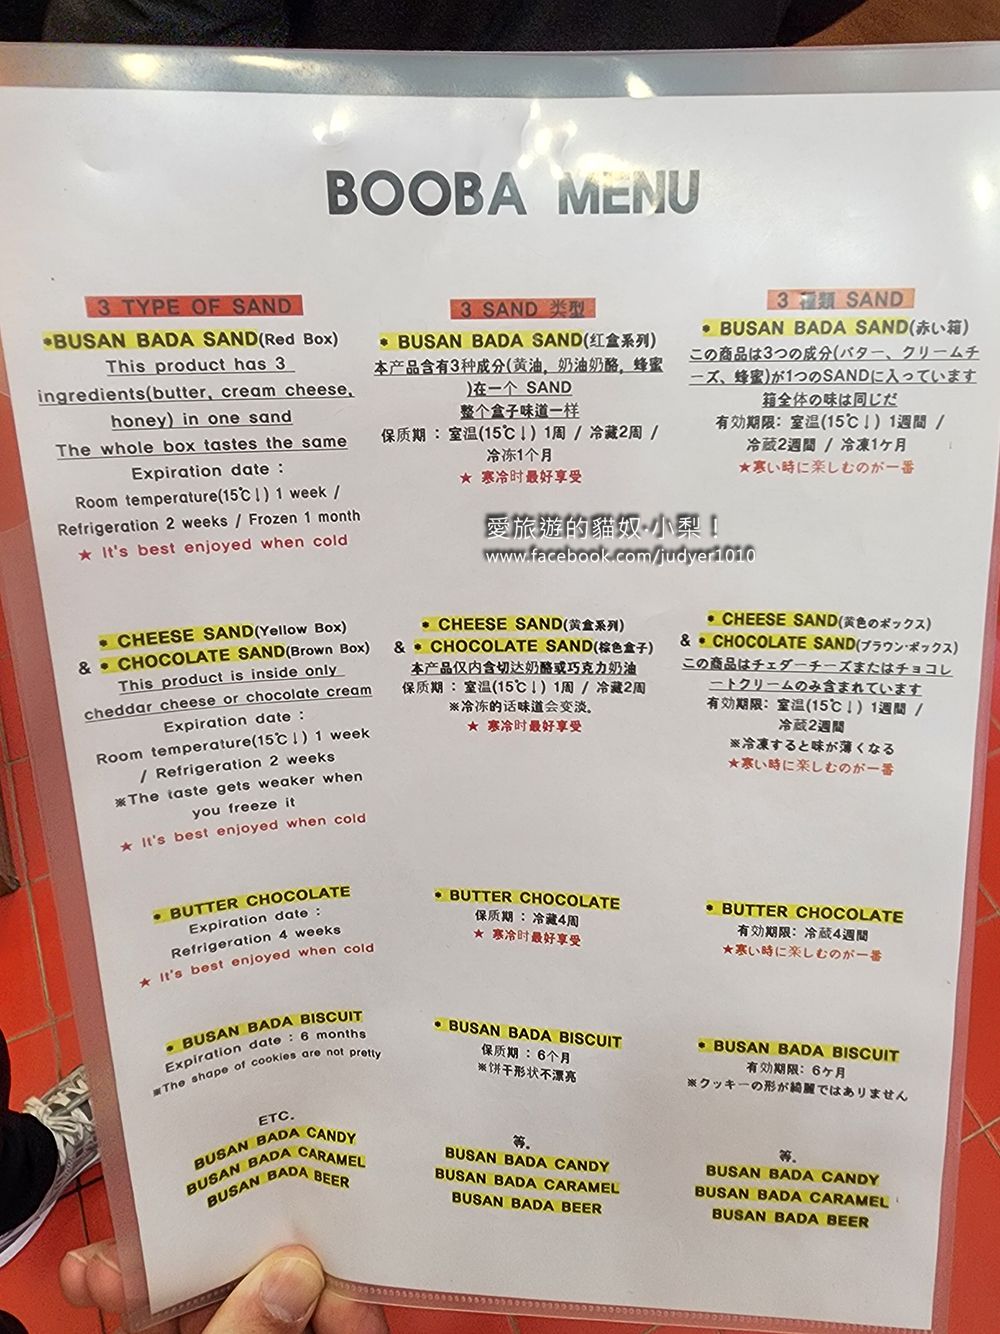 BOOBA MENU
3 TYPE OF SAND
*BUSAN BADA SAND(Red Box)
This product has 3
ingredients(butter, cream cheese,
honey) in one sand
The whole box tastes the same
Expiration date :
Room temperature(15℃↓) 1 week /
Refrigeration 2 weeks / Frozen 1 month
★ It's best enjoyed when cold
* CHEESE SAND(Yellow Box)
& * CHOCOLATE SAND(Brown Box)
This product is inside only
cheddar cheese or chocolate cream
Expiration date :
Room temperature(15℃↓) 1 week
/ Refrigeration 2 weeks
※The taste gets weaker when
you freeze it
★ It's best enjoyed when cold
* BUTTER CHOCOLATE
Expiration date :
Refrigeration 4 weeks
★ It's best enjoyed when cold
* BUSAN BADA BISCUIT
Expiration date : 6 months
※The shape of cookies are not pretty
ETC.
BUSAN BADA CANDY
BUSAN BADA CARAMEL
BUSAN BADA BEER
3 SAND 类型
* BUSAN BADA SAND(红盒系列)
本产品含有3种成分(黄油, 奶油奶酪, 蜂蜜
)在一个 SAND
整个盒子味道一样
保质期 : 室温(15℃↓) 1周 / 冷藏2周 /
冷冻1个月
★ 寒冷时最好享受
愛旅遊的貓奴·小梨！
www.facebook.com/judyer1010
* CHEESE SAND(黄盒系列)
& * CHOCOLATE SAND(棕色盒子)
本产品仅内含切达奶酪或巧克力奶油
保质期 : 室温(15℃↓) 1周 / 冷藏2周
※冷冻的话味道会变淡。
★ 寒冷时最好享受
* BUTTER CHOCOLATE
保质期 : 冷藏4周
★ 寒冷时最好享受
* BUSAN BADA BISCUIT
保质期 : 6个月
※饼干形状不漂亮
等。
BUSAN BADA CANDY
BUSAN BADA CARAMEL
BUSAN BADA BEER
3 種類 SAND
* BUSAN BADA SAND(赤い箱)
この商品は3つの成分(バター、クリームチ
ーズ、蜂蜜)が1つのSANDに入っています
箱全体の味は同じだ
有効期限: 室温(15℃↓) 1週間 /
冷蔵2週間 / 冷凍1ケ月
★寒い時に楽しむのが一番
* CHEESE SAND(黄色のボックス)
& * CHOCOLATE SAND(ブラウン·ボックス)
この商品はチェダーチーズまたはチョコレ
ートクリームのみ含まれています
有効期限: 室温(15℃↓) 1週間 /
冷蔵2週間
※冷凍すると味が薄くなる
★寒い時に楽しむのが一番
* BUTTER CHOCOLATE
有効期限: 冷蔵4週間
★寒い時に楽しむのが一番
* BUSAN BADA BISCUIT
有効期限: 6ケ月
※クッキーの形が綺麗ではありません
等。
BUSAN BADA CANDY
BUSAN BADA CARAMEL
BUSAN BADA BEER